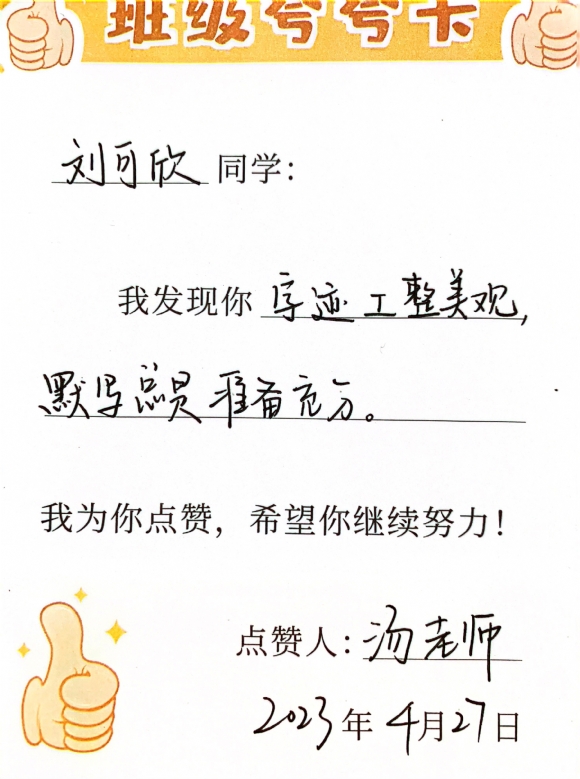 班级夸夸卡
刘可欣 同学：
我发现你 字迹工整美观，
默写总是准备充分。
我为你点赞，希望你继续努力！
点赞人：汤老师
2023年4月27日